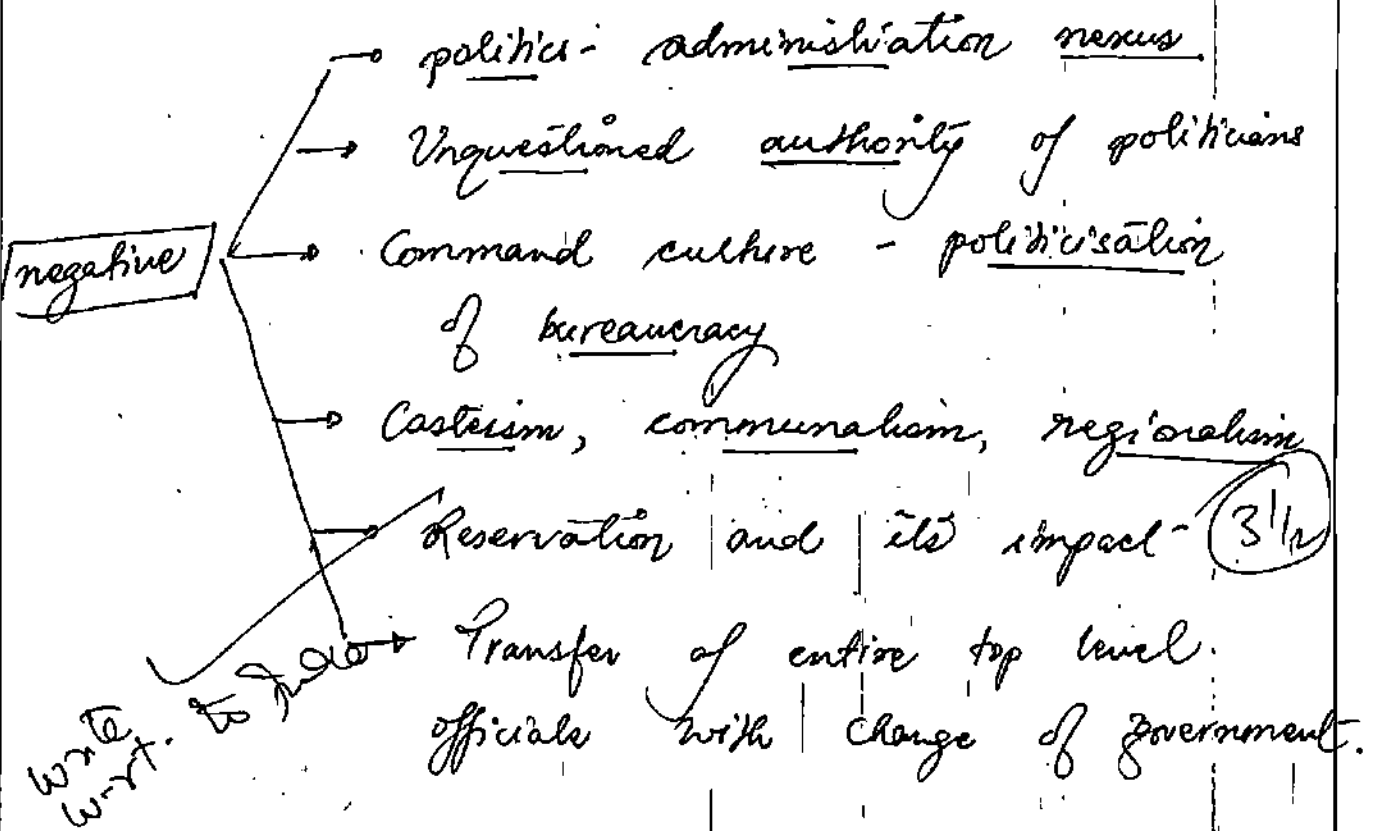 politics - administration nexus
Unquestioned authority of politicians
negative
Command culture - politicisation
of bureaucracy
Casteism, communalism, regionalism
Reservation and its impact - 3 1/2
Transfer of entire top level
officials with change of government.
write
w.r.t. to India